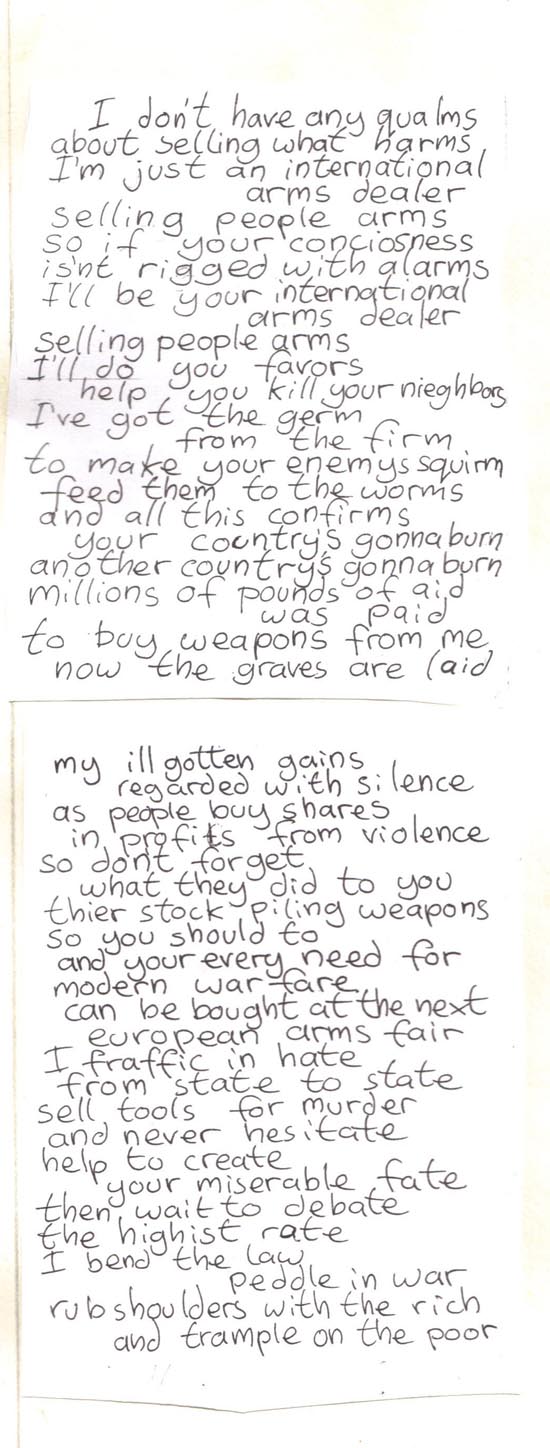 I don't have any qualms
about selling what harms
I'm just an international
arms dealer
selling people arms
so if your conciosness
is'nt rigged with alarms
I'll be your international
arms dealer
selling people arms
I'll do you favors
help you kill your nieghbors
I've got the germ
from the firm
to make your enemys squirm
feed them to the worms
and all this confirms
your country's gonna burn
another country's gonna burn
millions of pounds of aid
was paid
to buy weapons from me
now the graves are laid
my ill gotten gains
regarded with silence
as people buy shares
in profits from violence
so don't forget
what they did to you
thier stock piling weapons
so you should to
and your every need for
modern warfare
can be bought at the next
european arms fair
I traffic in hate
from state to state
sell tools for murder
and never hesitate
help to create
your miserable fate
then wait to debate
the highist rate
I bend the law
peddle in war
rub shoulders with the rich
and trample on the poor